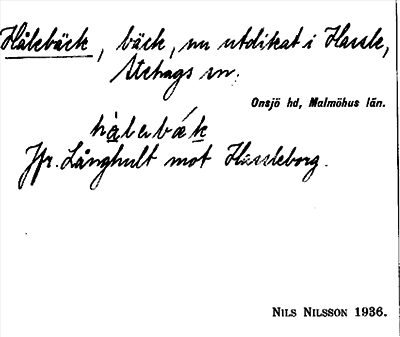 Hålebäck, bäck, nu utdikat i Hassle,
Stehags sn.
Onsjö hd, Malmöhus län.
hàlebák
Jfr. Långhult mot Hassleborg.
NILS NILSSON 1936.